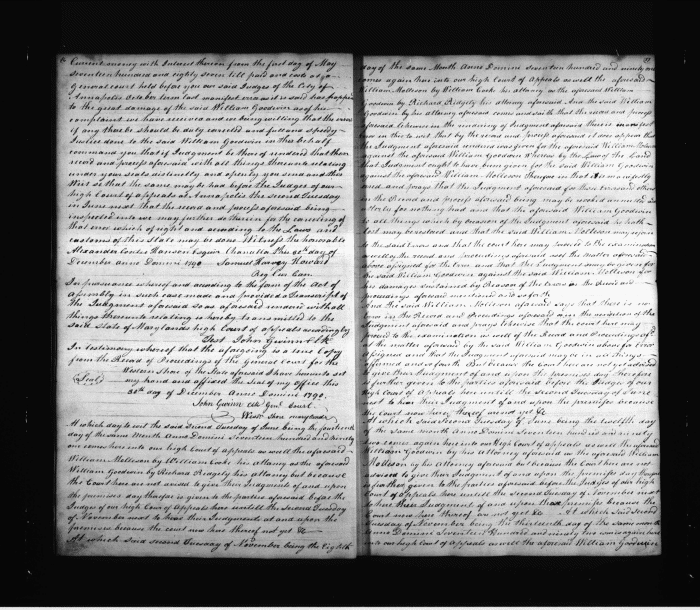 Current money with Interest thereon from the first day of May
seventeen hundred and eighty seven till paid and costs as yo
General court held before you our said Judges at the City of
Annapolis Octo ber term last manifest error as it is said has happen
to the great damage of the said William Goodwin as of his
complaint we have received and we being willing that the error
if any there be should be duly corrected and full and speedy
Justice done to the said William Goodwin in this behalf
command you that if Judgment be thereof rendered that then
record and process aforesaid with all things thereunto relating
under your seals distinctly and openly you send and this
Writ so that the same may be had before the Judges of our
high Court of appeals at Annapolis the second Tuesday
in June next that the record and process aforesaid being
inspected into we may further do therein for the correcting of
that error which of right and according to the Laws and
customs of this state may be done Witness the honorable
Alexander Contee Hanson Esquire Chancellor this 20th day of
December anno Domini 1790 Samuel Harvey Howard
Reg Cur Can
In pursuance whereof and according to the form of the Act of
Assembly in such case made and provided a Transcript of
The Judgment aforesaid so as aforesaid rendered with all
things thereunto relating is hereby transmitted to the
said State of Marylands high Court of appeals accordingly
Test John Gwinn Clk
In testimony whereof that the aforegoing is a true Copy
from the Record of Proceedings of the General Court for the
Western Shore of the State aforesaid I have hereunto set
(Seal) my hand and affixed the Seal of my Office this
30th day of December Anno Domini 1790.
John Gwinn Clk Genl Court
West Shore maryland
At which day to wit the said second Tuesday of June being the fourteenth
day of the same Month Anno Domini Seventeen hundred and ninety
one comes here into our high Court of appeals as well the aforesaid
William Molleson by William Cooke his attorney as the aforesaid
William Goodwin by Richard Ridgely his attorney But because
the Court here are not advised to give their Judgments of and upon
the premises day therefore is given to the parties aforesaid before the
Judges of our high Court of Appeals here until the Second Tuesday
of November next to hear their Judgments of and upon the
premises because the court now here thereof not yet &c
At which said second Tuesday of November being the Eighth
day of the same Month Anno Domini seventeen hundred and ninety one
comes again here into our high Court of Appeals as well the aforesaid
William Molleson by William Cooke his attorney as the aforesaid William
Goodwin by Richard Ridgely his attorney aforesaid And the said William
Goodwin by his attorney aforesaid comes and saith that the record and process
aforesaid likewise in the rendering of Judgment aforesaid there is manifest
error in this to wit that by the record and process aforesaid it does appear that
the Judgment aforesaid rendered was given for the aforesaid William Molleson
against the aforesaid William Goodwin Whereas by the Law of the Land
that Judgment ought to have been given for the said William Goodwin
against the aforesaid William Molleson Therefore in that it is manifestly
erred and prays that the Judgment aforesaid for those errors and others
in the Record and process aforesaid being may be revoked annulled and
entirely for nothing had and that the aforesaid William Goodwin
to all things which by occasion of the Judgment aforesaid he hath
lost may be restored and that the said William Molleson may rejoin
to the said errors and that the court here may proceed to the examination
as well of the record and proceedings aforesaid as of the matters aforesaid
above assigned for the error and that the Judgment may be reversed for
the said William Goodwin against the said William Molleson for
his damages sustained by Reason of the Errors in the Record and
proceedings aforesaid mentioned and so forth
And the said William Molleson aforesaid says that there is no
Error in the Record and Proceedings aforesaid or in the rendition of the
Judgment aforesaid and prays likewise that the court here may
proceed to the examination as well of the Record and Proceedings as
of the matter aforesaid by the said William Goodwin above for Error
assigned and that the Judgment aforesaid may be in all things
affirmed and so forth But because the Court here are not yet advised
to give their Judgment of and upon the premises day therefore
is further given to the parties aforesaid before the Judges of our
high Court of Appeals here until the second Tuesday of June
next to hear their Judgment of and upon the premises because
the Court now here thereof are not yet &c
At which said second Tuesday of June being the twelfth day
of the same month Anno Domini Seventeen hundred and ninety
two comes again here into our High Court of appeals as well the aforesaid
William Goodwin by his Attorney aforesaid as the aforesaid William
Molleson by his Attorney aforesaid but because the Court here are not
advised to give their Judgment of and upon the premises day therefore
is further given to the parties aforesaid before the Judges of our high
Court of Appeals here until the second Tuesday of November next
to hear their Judgment of and upon these premises because the
Court now here thereof are not yet &c At which said second
Tuesday of November being the thirteenth day of the same month
Anno Domini Seventeen Hundred and ninety two comes again here
into our high Court of Appeals as well the aforesaid William Goodwin